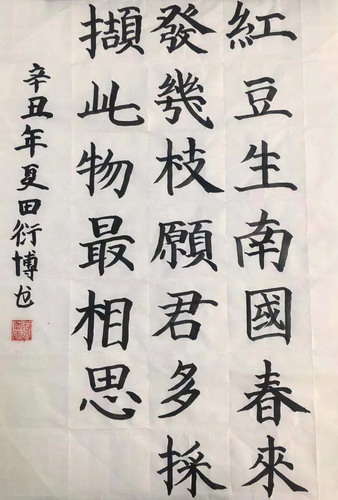 紅豆生南國春來
發幾枝願君多採
擷此物最相思
辛丑年夏田衍博書